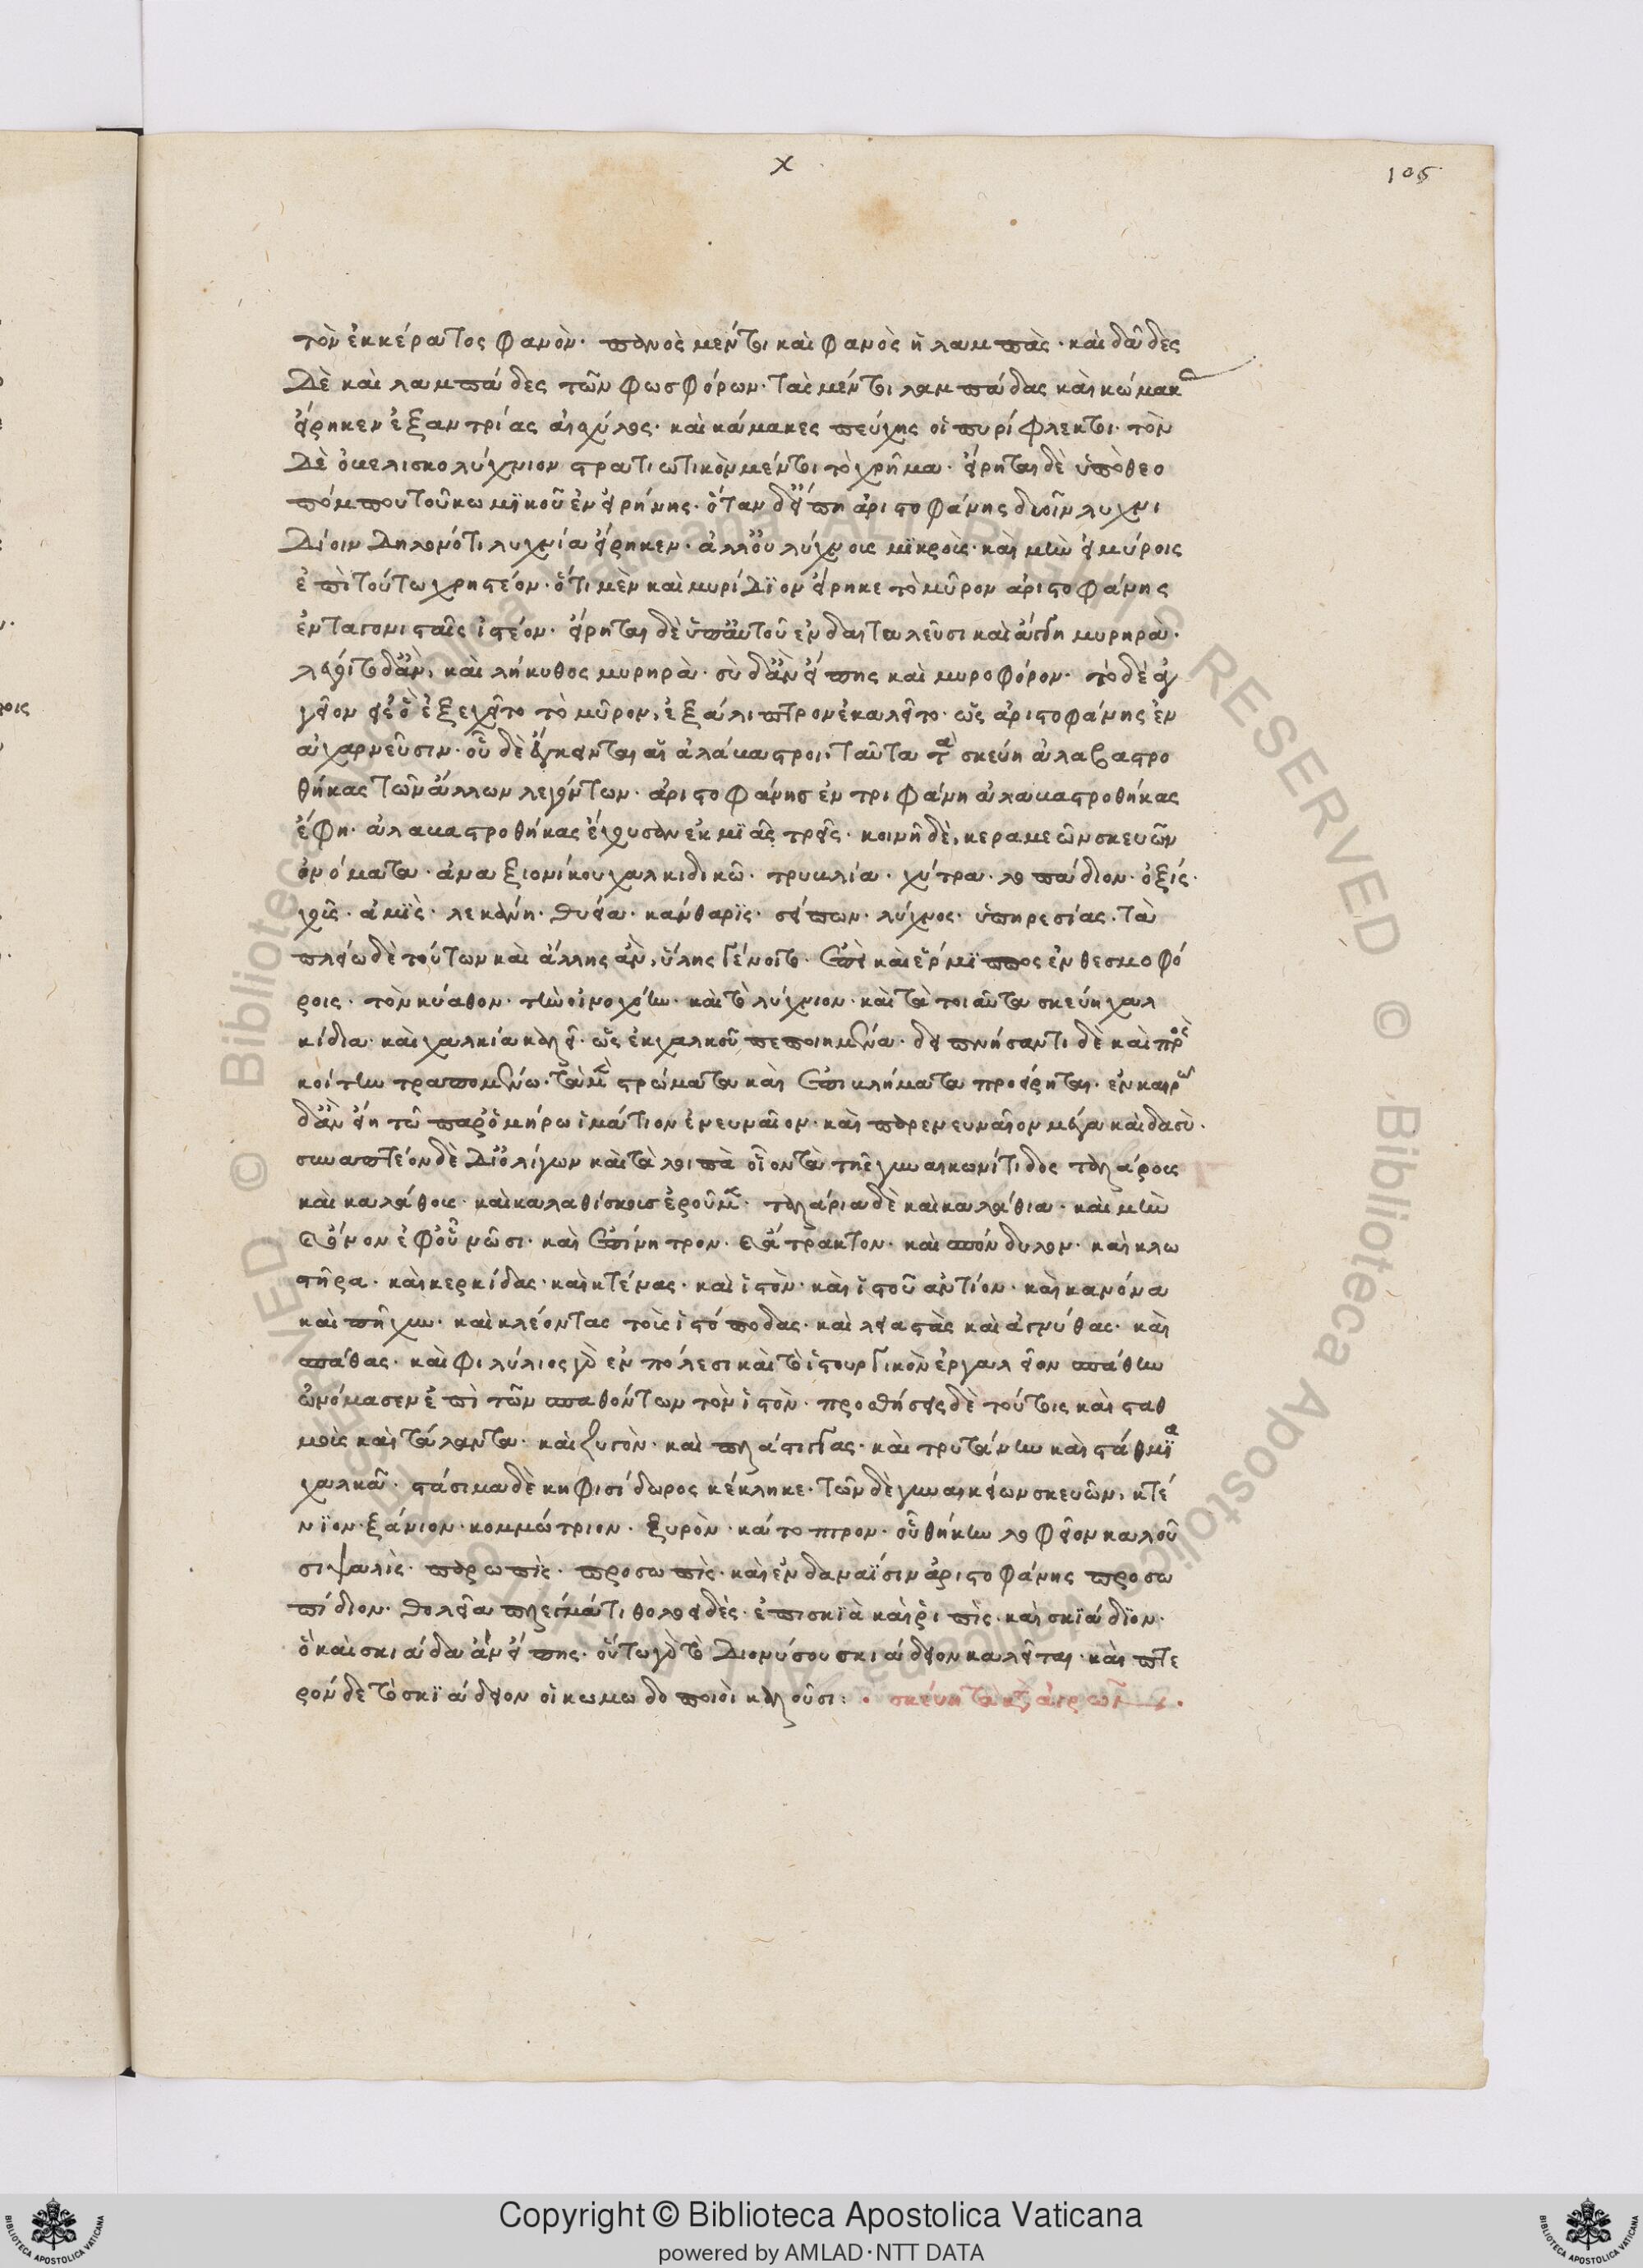 x
105
τὸν ἐκ κέρατος φανὸν· πανὸς μέντοι καὶ φανὸς ἡ λαμπὰς· καὶ δᾶδες
δὲ καὶ λαμπάδες τῶν φωσφόρων· τὰς μέντοι λαμπάδας καὶ κάμακας
εἴρηκεν ἐξαντρίας αἰσχύλος· καὶ κάμακες πεύκης οἱ πυρίφλεκτοι· τὸν
δὲ ὀβελισκολύχνιον στρατιωτικὸν μέντοι τὸ χρῆμα· εἴρηται δὲ ὑπὸ θεο
πόμπου τοῦ κωμϊκοῦ ἐν εἰρήνης· ὅταν δ' εἴπη ἀριστοφάνης δυοῖν λυχνι
δίοιν δηλονότι λυχνία εἴρηκεν· ἀλλ' οὐ λύχνοις μϊκροῖς· καὶ μὴν εἰ μύροις
ἐπὶ τούτω χρηστέον· ὅτι μὲν καὶ μυρίδϊον εἴρηκε τὸ μῦρον ἀριστοφάνης
ἐν ταγονισταῖς ἰστέον· εἴρηται δὲ ὑπ' αὐτοῦ ἐν δαιταλεῦσι καὶ μυρηρὰ·
λέγοιτο δ' ἂν, καὶ λήκυθος μυρηρὰ· σὺ δ' ἂν εἴπης καὶ μυροφόρον· τὸ δὲ ἀγ
γεῖον εἰς ὃ ἐξεχεῖτο τὸ μῦρον, ἐξάλιπτρον ἐκαλεῖτο· ὡς ἀριστοφάνης ἐν
ἀχαρνεῦσιν· οὗ δὲ ἔγκεινται αἱ ἀλάβαστροι, ταῦτα τὰ σκεύη ἀλαβαστρο
θήκας τῶν ἄλλων λεγόντων· ἀριστοφάνησ ἐν τριφάνη ἀλαβαστροθήκας
ἔφη· ἀλαβαστροθήκας ἔχουσαν ἐκ μϊᾶς τρεῖς· κοινῆ δὲ, κεραμεῶν σκευῶν
ὀνόματα· ἀναξιονίκου χαλκιδικῶ· τρυβλία· χύτρα· λοπάδιον· ὀξίς·
χοῦς· ἀμϊὶς· λεκάνη· θυΐα· κάνθαρϊς· σείπων· λύχνος· ὑπηρεσίας· τὰ
πλείω δὲ τούτων καὶ ἄλλης ἂν, ὕλης γένοιτο· ἐπεὶ καὶ ἕρμϊππος ἐν θεσμοφό
ροις· τὸν κύαθον· τὴν οἰνοχόην· καὶ τὸ λύχνιον· καὶ τὰ τοιαῦτα σκεύη χαλ
κίδια· καὶ χαλκία καλεῖ· ὡς ἐκ χαλκοῦ πεποιημένα· δειπνήσαντι δὲ καὶ πρὸς
κοίτην τραπομένω· τὰ μὲν στρώματα καὶ ἐπιβλήματα προείρηται· ἐν καιρῶ
δ' ἂν εἴη τῶ παρ' ὁμήρω ἱμάτιον ἐνευναῖον· καὶ παρενευναῖον μέγα καὶ δασὺ·
συναπτέον δὲ δι' ὀλίγων καὶ τὰ λοιπὰ οἷον τὰ τῆς γυναικωνίτιδος ταλάροις
καὶ καλάθοις· καὶ καλαθίσκοισ ἐροῦμεν· ταλάρια δὲ καὶ καλάθια· καὶ μὴν
ἐφ' οὗ νῶσι· καὶ ἐπίνητρον· ἄτρακτον· καὶ σπόνδυλον· καὶ κλω
στῆρα· καὶ κερκίδας· καὶ κτένας· καὶ ἱστὸν· καὶ ἱστοῦ ἀντίον· καὶ κανόνα
καὶ πῆχυν· καὶ κλέοντας τοῖς ἱστόποδας· καὶ λεαστὰς καὶ ἀγνύθας· καὶ
σπάθας· καὶ φιλύλιος γὰρ ἐν πόλεσι καὶ τὸ ἱστουργικὸν ἐργαλεῖον σπάθην
ὠνόμασεν ἐπὶ τῶν σπαθόντων τὸν ἱστὸν· προσθήσεις δὲ τούτοις καὶ σταθ
μοὶς καὶ τάλαντα· καὶ ζυγὸν· καὶ πλάστιγγας· καὶ τρυτάνην καὶ στάθμϊα
χαλκᾶ· στάσιμα δὲ κηφισόδωρος κέκληκε· τῶν δὲ γυναικείων σκευῶν, κτέ
νϊον· ξάνιον· κομμώτριον· ξυρὸν· κάτοπτρον· οὗ θήκην λοφεῖον καλοῦ
σι ψαλὶς· παρωπὶς· προσωπὶς· καὶ ἐν δαναΐσιν ἀριστοφάνης προσω
πίδιον· θολία πλέγμάτι θολοειδὲς· ἐπισκϊὰ καὶ ῥιπὶς· καὶ σκϊάδϊον·
ὃ καὶ σκιάδα ἂν εἴπης· οὕτω γὰρ τὸ διονύσου σκιάδειον καλεῖται· καὶ πτε
ρόν δὲ τὸ σκϊάδειον οἱ κωμωδοποιοὶ καλοῦσι: • σκεύη τὰ κατ' ἀγρῶν
Copyright © Biblioteca Apostolica Vaticana
powered by AMLAD·NTT DATA